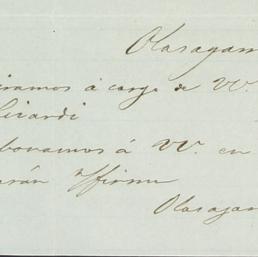 Olasagar
iramos á cargo de VV.
Girardi
bonamos á VV. en
arán
Olasagar